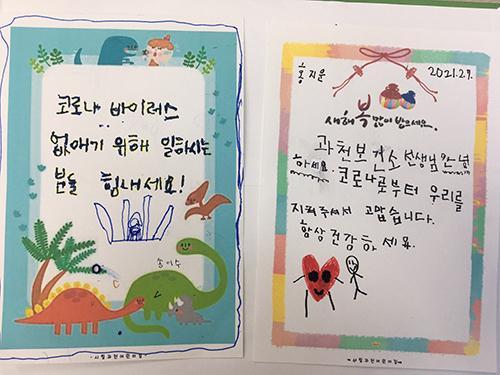 코로나 바이러스
없애기 위해 일하시는
분들 힘내세요!
송이수
시립과천어린이집
홍지윤
2021.29.
새해 복 많이 받으세요.
과천보건소 선생님 안녕
하세요. 코로나로부터 우리를
지켜 주셔서 고맙습니다.
항상 건강하세요.
시립과천어린이집